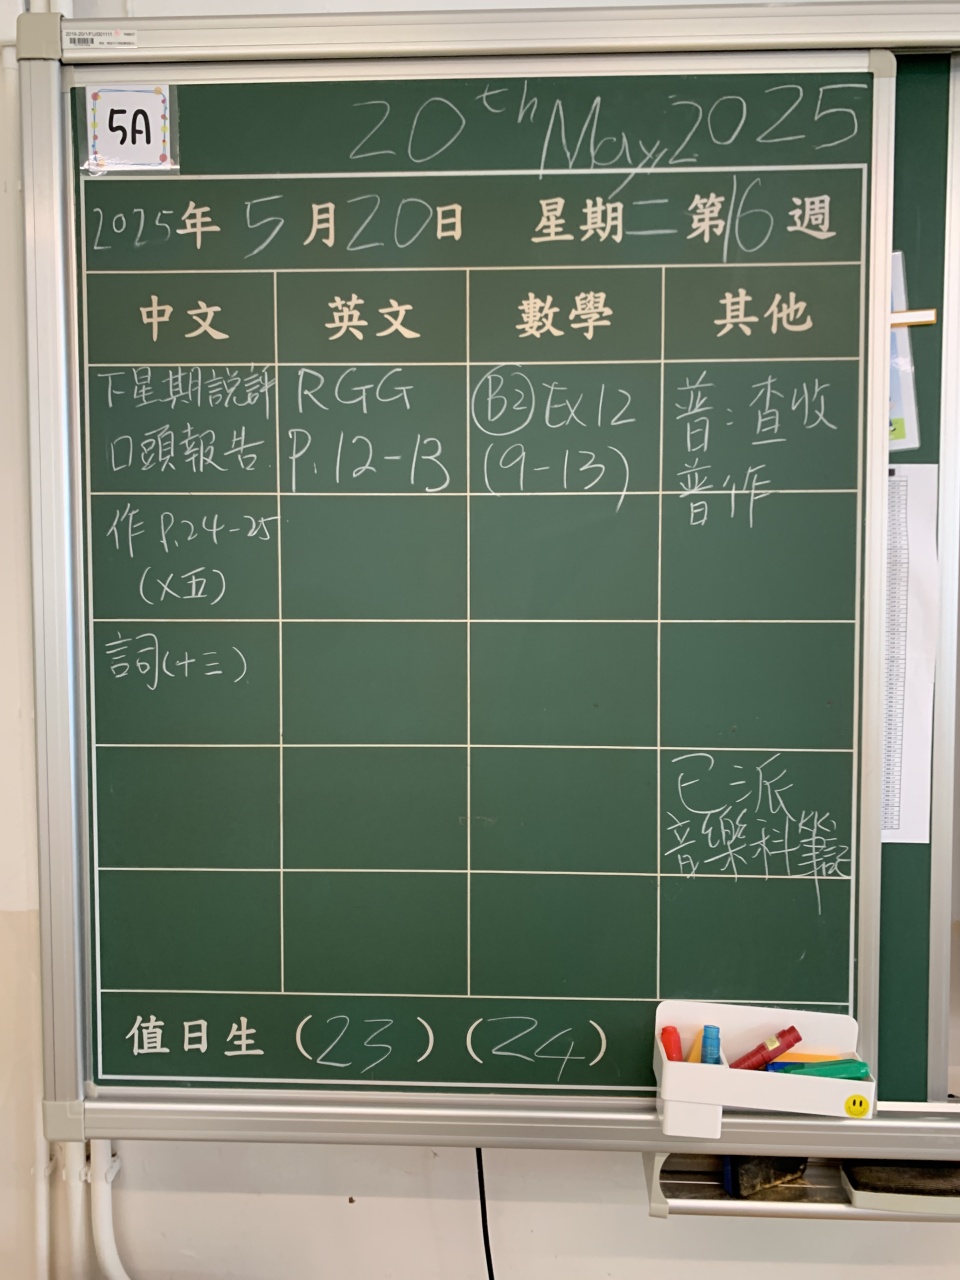 5A
20th May, 2025
2025年 5月20日 星期二 第16週
中文 英文 數學 其他
下星期説評
口頭報告.
RGG
P. 12-13
B2 Ex12
(9-13)
普:查收
普作
作 P.24-25
(X五)
詞(十三)
已派
音樂科筆記
值日生 (23) (24)